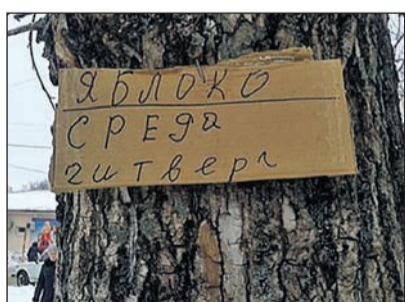 ЯБЛОКО
СРЕДА
читверг